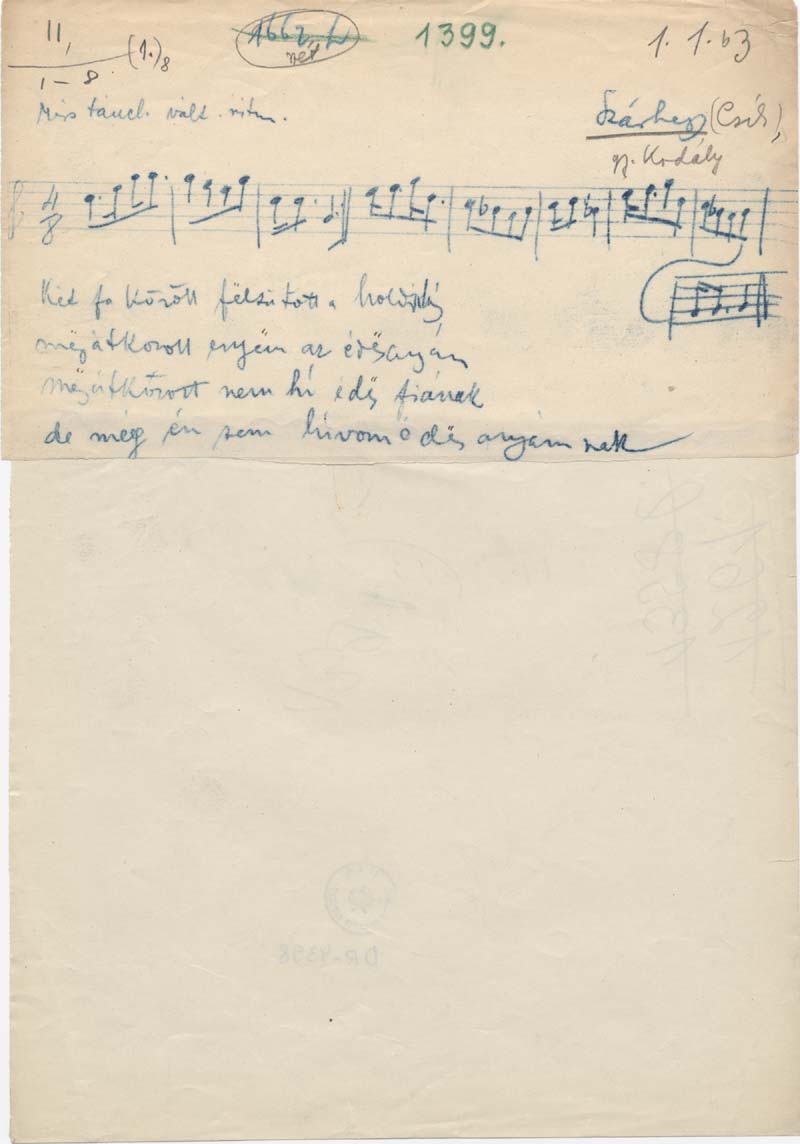 II,
1 – 8 (1.)8
1662, L
1399.
1. 1. 63
tánc. vált. ritm.
Szárhegy (Csík),
gy. Kodály
4
8
Két fa között félsütött a
mëgátkozott engëm az édësanyám
mëgátkozott nem hí édës fiának
de még én sem hívom édës anyámnak
DR-4398